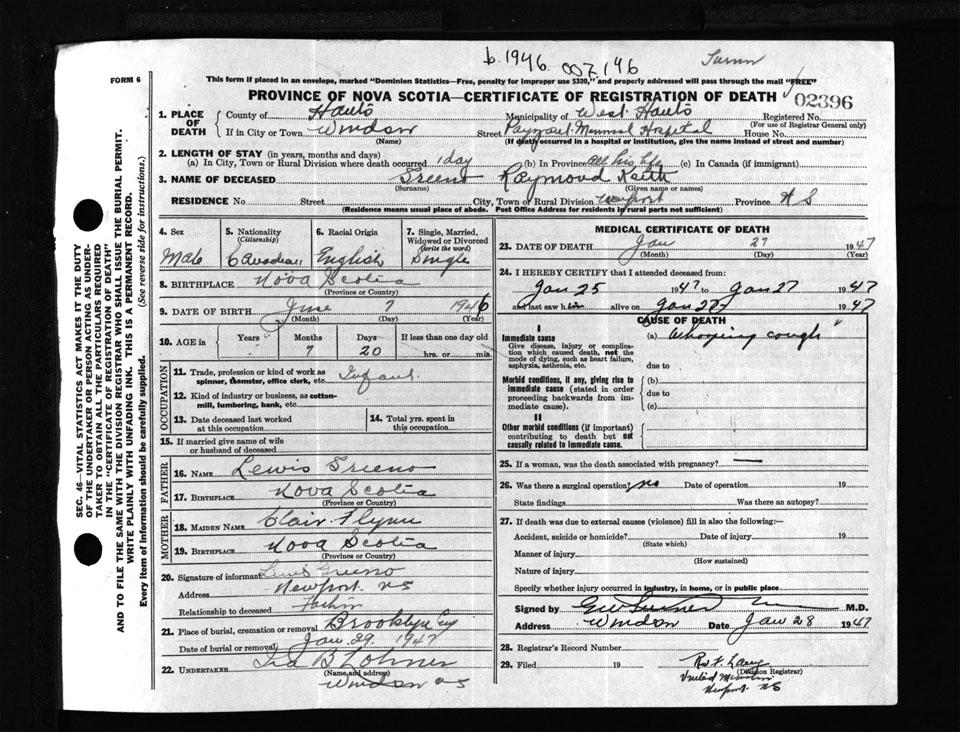 b. 1946. 007196
FORM 6
This form if placed in an envelope, marked "Dominion Statistics—Free, penalty for improper use $300," and properly addressed will pass through the mail "FREE"
PROVINCE OF NOVA SCOTIA—CERTIFICATE OF REGISTRATION OF DEATH
02396
1. PLACE OF DEATH
County of Hants Municipality of West Hants Registered No.
(For use of Registrar General only)
If in City or Town Windsor Street Payzant Memorial Hospital House No.
(Name) (If death occurred in a hospital or institution, give name instead of street and number)
2. LENGTH OF STAY (in years, months and days)
(a) In City, Town or Rural Division where death occurred 1 day (b) In Province all his life (c) In Canada (if immigrant)
3. NAME OF DECEASED Greeno Raymond Keith
(Surname) (Given name or names)
RESIDENCE No. Street City, Town or Rural Division Newport Province N S
(Residence means usual place of abode. Post Office Address for residents in rural parts not sufficient)
4. Sex Male
5. Nationality (Citizenship) Canadian
6. Racial Origin English
7. Single, Married, Widowed or Divorced (write the word) Single
8. BIRTHPLACE Nova Scotia
(Province or Country)
9. DATE OF BIRTH June 7 1946
(Month) (Day) (Year)
10. AGE in Years Months Days If less than one day old
7 20 hrs. or min.
OCCUPATION
11. Trade, profession or kind of work as spinner, teamster, office clerk, etc. Infant
12. Kind of industry or business, as cotton-mill, lumbering, bank, etc.
13. Date deceased last worked at this occupation
14. Total yrs. spent in this occupation
15. If married give name of wife or husband of deceased
FATHER
16. NAME Lewis Greeno
17. BIRTHPLACE Nova Scotia
(Province or Country)
MOTHER
18. MAIDEN NAME Clair Flynn
19. BIRTHPLACE Nova Scotia
(Province or Country)
20. Signature of informant Lewis Greeno
Address Newport NS
Relationship to deceased father
21. Place of burial, cremation or removal Brooklyn
Date of burial or removal Jan 29. 1947
22. UNDERTAKER Ira B Lohnes
(Name and address)
Windsor NS
MEDICAL CERTIFICATE OF DEATH
23. DATE OF DEATH Jan 27 1947
(Month) (Day) (Year)
24. I HEREBY CERTIFY that I attended deceased from:
Jan 25 1947 to Jan 27 1947
and last saw him alive on Jan 27 1947
CAUSE OF DEATH
I
Immediate cause (a) "Whooping cough"
Give disease, injury or complication which caused death, not the mode of dying, such as heart failure, asphyxia, asthenia, etc. due to
Morbid conditions, if any, giving rise to immediate cause (stated in order proceeding backwards from immediate cause). (b)
due to
(c)
II
Other morbid conditions (if important) contributing to death but not causally related to immediate cause.
25. If a woman, was the death associated with pregnancy? —
26. Was there a surgical operation? no Date of operation 19
State findings Was there an autopsy?
27. If death was due to external causes (violence) fill in also the following:—
Accident, suicide or homicide? Date of injury 19
(State which)
Manner of injury
(How sustained)
Nature of injury
Specify whether injury occurred in industry, in home, or in public place
Signed by M.D.
Address Windsor Date Jan 28 1947
28. Registrar's Record Number
29. Filed 19
(Division Registrar)
Newport NS
SEC. 46—VITAL STATISTICS ACT MAKES IT THE DUTY
OF THE UNDERTAKER OR PERSON ACTING AS UNDER-
TAKER TO OBTAIN ALL THE PARTICULARS REQUIRED
IN THE "CERTIFICATE OF REGISTRATION OF DEATH"
AND TO FILE THE SAME WITH THE DIVISION REGISTRAR WHO SHALL ISSUE THE BURIAL PERMIT.
WRITE PLAINLY WITH UNFADING INK. THIS IS A PERMANENT RECORD.
Every item of information should be carefully supplied. (See reverse side for instructions.)